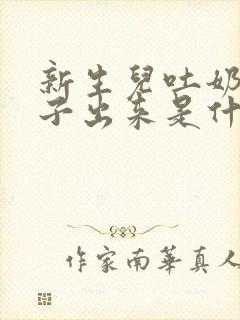 新生兒吐奶
子出来是什
作家南華真人